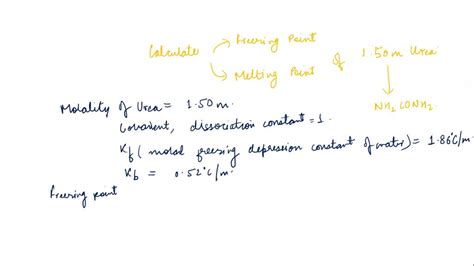 Calculate
Freezing Point
Melting Point
of 1.50 m Urea
NH2CONH2
Molality of Urea = 1.50 m.
Covalent, dissociation constant = 1.
Kf (molal freezing depression constant of water) = 1.86°C/m
Kb = 0.52°C/m.
freezing point